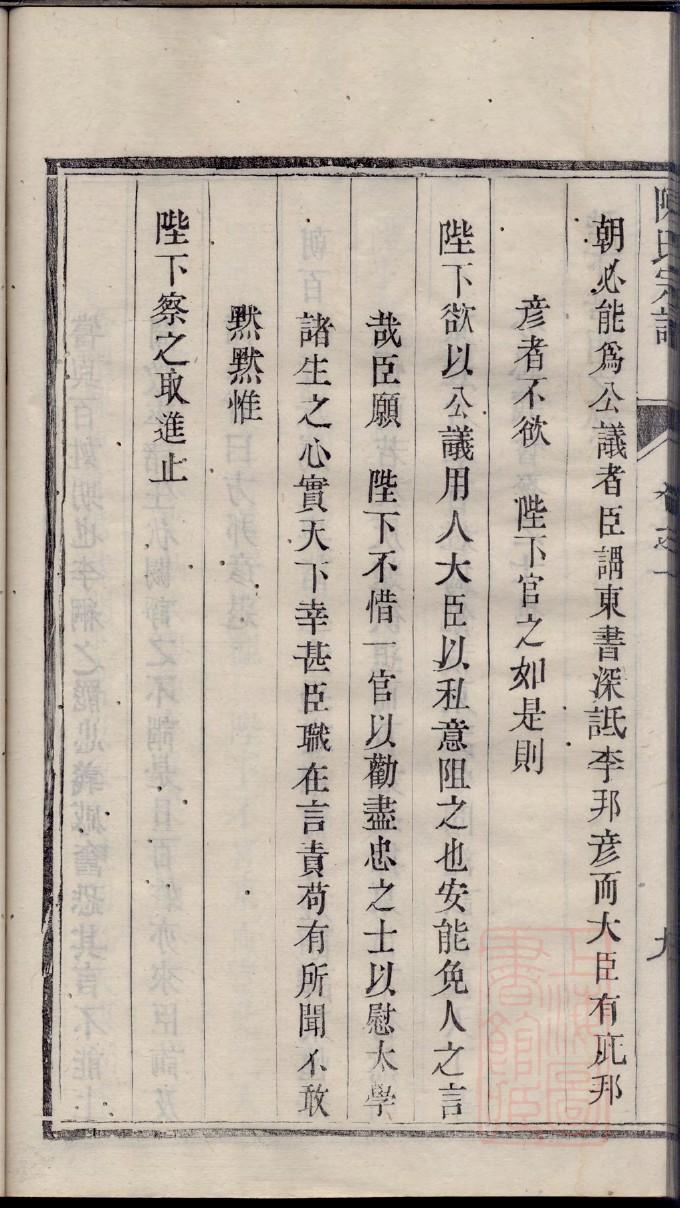 陳氏宗譜 卷之一 九
朝必能爲公議者臣謂東書深詆李邦彥而大臣有庇邦
彥者不欲 陛下官之如是則
陛下欲以公議用人大臣以私意阻之也安能免人之言
哉臣願 陛下不惜一官以勸盡忠之士以慰太學
諸生之心實天下幸甚臣職在言責苟有所聞不敢
默默惟
陛下察之取進止